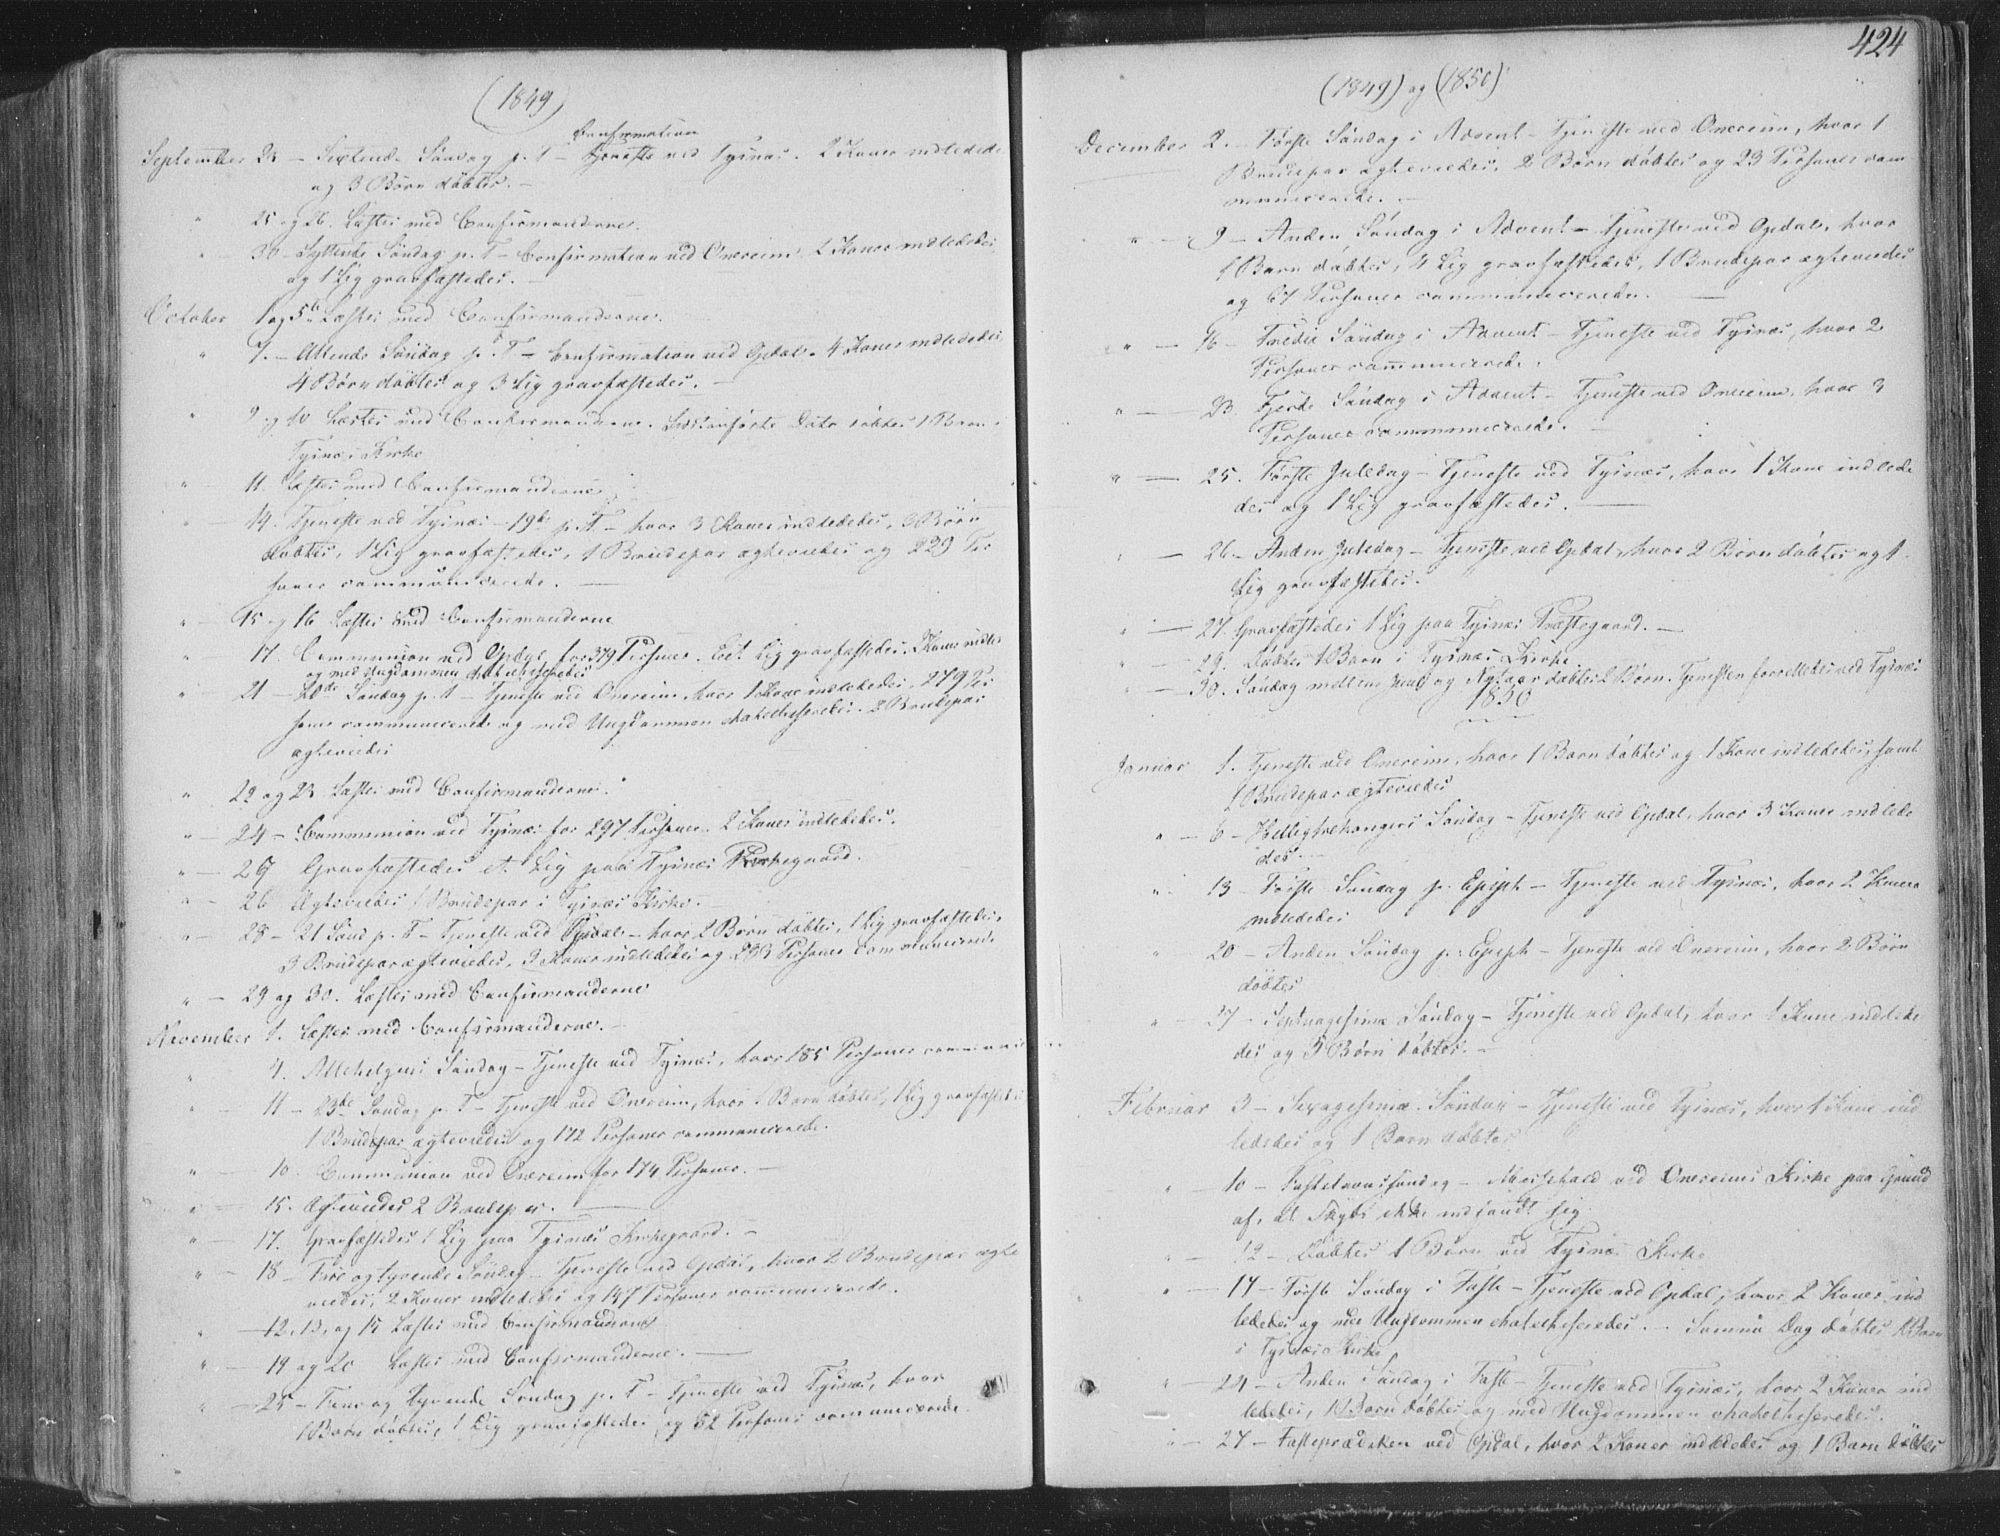 (1849)
Confirmation
September 23 – Sextende Søndag p. T – Tjeneste ved Tysnæs. 2 Koner indlededes
og 3 Børn døbtes. –
" 25 og 26. Læstes med Confirmanderne.
" 30 – Syttende Søndag p. T – Confirmation ved Onereim. 2 Koner indlededes
og 1 Lig gravfæstedes. –
October 1 og 5te Læstes med Confirmanderne.
" 7. – Attende Søndag p. T – Confirmation ved Opdal. 4 Koner indlededes,
4 Børn døbtes og 3 Lig gravfæstedes. –
" 9 og 10 Læstes med Confirmanderne. Sidstanførte Dato døbtes 1 Barn i
Tysnæs Kirke
" 11. Læstes med Confirmanderne.
" 14. Tjeneste ved Tysnæs – 19de p. T – hvor 3 Koner indlededes, 3 Børn
døbtes, 1 Lig gravfæstedes, 1 Brudepar ægteviedes og 229 Per
soner communicerede. –
" – 15 og 16 Læstes med Confirmanderne
" 17. Communion ved Opdal for 379 Personer. Eet Lig gravfæstedes. 2 Koner indledes
og med Ungdommen catechiseredes
" 21 – 20de Søndag p. T – Tjeneste ved Onereim, hvor 1 Kone indlededes, 279 Per
soner communicerede og med Ungdommen chatechiseredes. 2 Brudepar
ægteviedes
" 22 og 23 Læstes med Confirmanderne.
" – 24 – Communion ved Tysnæs for 297 Personer. 2 Koner indlededes.
" – 26 Gravfæstedes et Lig paa Tysnæs Kirkegaard.
" – 26 Ægteviedes 1 Brudepar i Tysnæs Kirke. –
" – 28 – 21 Sønd p. T – Tjeneste ved Opdal – hvor 2 Børn døbtes, 1 Lig gravfæstedes,
3 Brudepar ægteviedes, 3 Koner indlededes og 233 Personer communicerede.
" – 29 og 30. Læstes med Confirmanderne
November 1. Læstes med Confirmanderne. –
" 4. Allehelgens Søndag – Tjeneste ved Tysnæs, hvor 185 Personer communi
" – 11 – 23de Søndag p. T – Tjeneste ved Onereim, hvor 1 Barn døbtes, 1 Lig gravfæstedes
1 Brudepar ægteviedes og 172 Personer communicerede.
" – 10. Communion ved Onereim for 174 Personer. –
" – 15. Ægteviedes 2 Brudepar.
" – 17. Gravfæstedes 1 Lig paa Tysnæs Kirkegaard. –
" – 18 – Fire og tyvende Søndag – Tjeneste ved Opdal, hvor 2 Brudepar ægte
viedes, 2 Koner indlededes og 147 Personer communicerede.
" – 12, 13, og 14 Læstes med Confirmanderne
" – 19 og 20 Læstes med Confirmanderne. –
" – 25 – Fem og tyvende Søndag p. T – Tjeneste ved Tysnæs, hvor
1 Barn døbtes, 1 Lig gravfæstedes og 52 Personer communicerede.
424
(1849) og (1850)
December 2. – Første Søndag i Advent – Tjeneste ved Onereim, hvor 1
Brudepar ægteviedes, 2 Børn døbtes og 23 Personer com
municerede. –
" – 9 – Anden Søndag i Advent – Tjeneste ved Opdal, hvor
1 Barn døbtes, 4 Lig gravfæstedes, 1 Brudepar ægteviedes
og 67 Personer communicerede. –
" – 16 – Tredie Søndag i Advent – Tjeneste ved Tysnæs, hvor 2
Personer communicerede.
" – 23. Fjerde Søndag i Advent – Tjeneste ved Onereim, hvor 3
Personer communicerede. –
" – 25. Første Juledag – Tjeneste ved Tysnæs, hvor 1 Kone indlede
des og 1 Lig gravfæstedes. –
" – 26 – Anden Juledag – Tjeneste ved Opdal, hvor 2 Børn døbtes og 1
Lig gravfæstedes.
" – 27. Gravfæstedes 1 Lig paa Tysnæs Præstegaard. –
" – 29. Døbtes 1 Barn i Tysnæs Kirke.
" – 30. Søndag mellem Juul og Nytaar døbtes 2 Børn. Tjenesten forrettedes ved Tysnæs
1850
Januar 1. Tjeneste ved Onereim, hvor 1 Barn døbtes og 1 Kone indlededes, samt
1 Brudepar ægteviedes
" – 6 – Helligtrekongers Søndag – Tjeneste ved Opdal, hvor 3 Koner indlede
des. –
" 13 – Første Søndag p. Epiph – Tjeneste ved Tysnæs, hvor 2 Koner
indlededes
" 20 – Anden Søndag p. Epiph – Tjeneste ved Onereim, hvor 2 Børn
døbtes
" – 27 – Septuagesima Søndag – Tjeneste ved Opdal, hvor 1 Kone indlede
des og 3 Børn døbtes. –
Februar 3 – Sexagesima Søndag – Tjeneste ved Tysnæs, hvor 1 Kone ind
lededes og 1 Barn døbtes
" – 10 – Fastelavnssøndag – Messefald ved Onereims Kirke paa Grund
af, at Skyds ikke indfandt sig.
" – 12 – Døbtes 1 Børn ved Tysnæs Kirke
" – 17 – Første Søndag i Faste – Tjeneste ved Opdal, hvor 2 Koner ind
lededes og med Ungdommen chatechiseredes. – Samme Dag døbtes 1 Barn
i Tysnæs Kirke
" – 24 – Anden Søndag i Faste – Tjeneste ved Tysnæs, hvor 2 Koner ind
lededes, 1 Barn døbtes og med Ungdommen chatechiseredes.
" – 27 – Fasteprædiken ved Opdal, hvor 2 Koner indlededes og 1 Barn døbtes